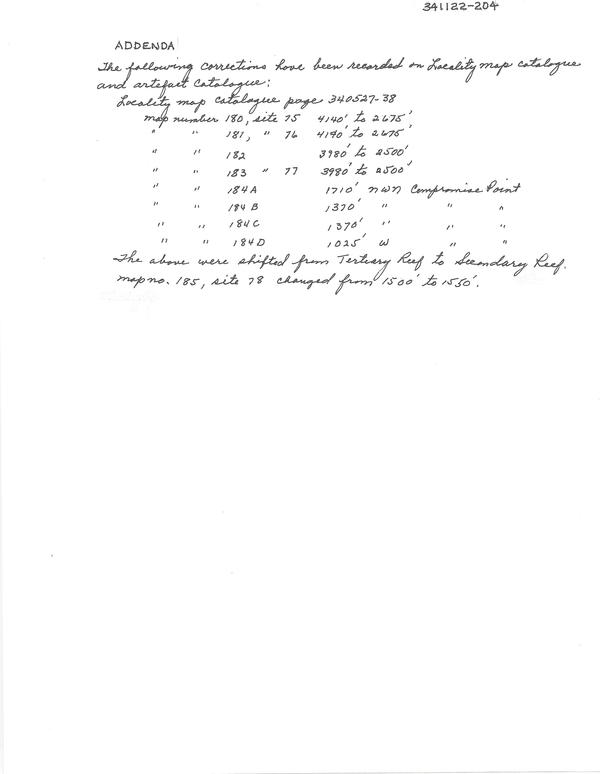 341122-204
ADDENDA
The following corrections have been recorded on Locality map catalogue
and artefact catalogue:
Locality map catalogue page 340527-38
map number 180, site 75 4140' to 2675'
" " 181, " 76 4190' to 2675'
" " 182 3980' to 2500'
" " 183 " 77 3980' to 2500'
" " 184A 1710' NWN Compromise Point
" " 184B 1370' " " "
" " 184C 1370' " " "
" " 184D 1025' W " "
The above were shifted from Tertiary Reef to Secondary Reef.
map no. 185, site 78 changed from 1500' to 1550'.